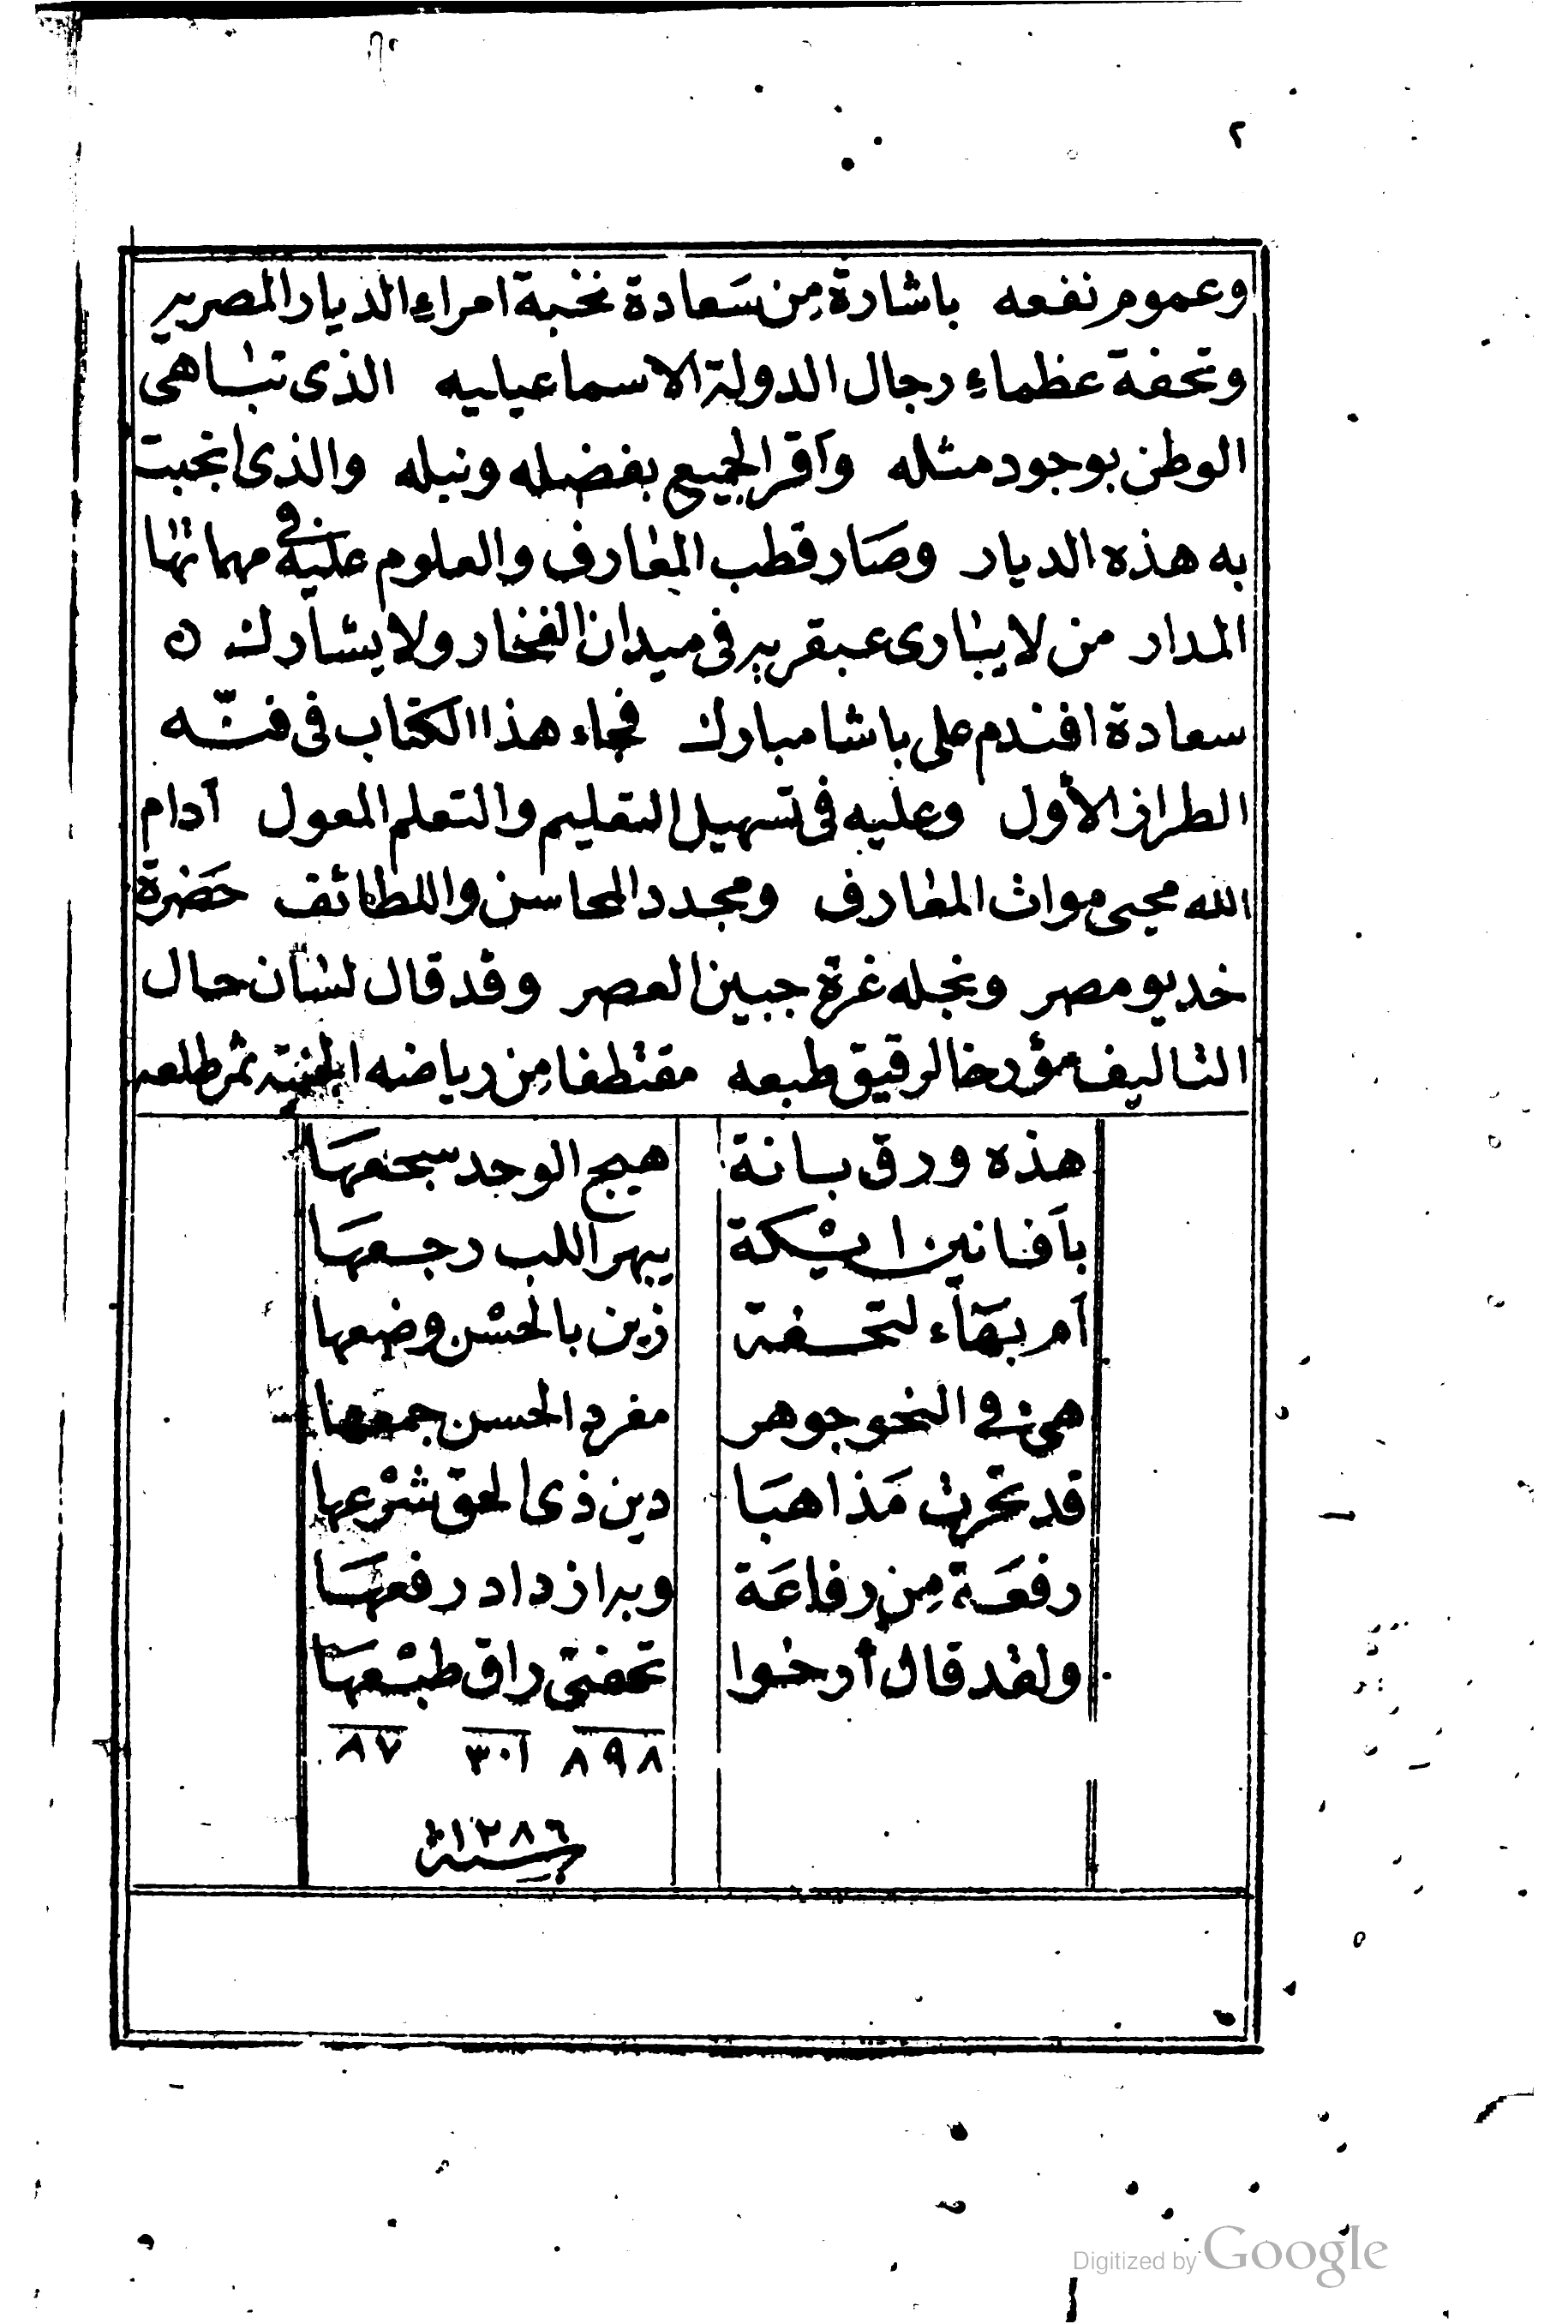 ٢
وعموم نفعه باشارة مِن سَعادة نخبة امراءِ الديار المصريه
وتحفة عظماءِ رجال الدولة الاسماعيليه الذى تباهى
الوطن بوجود مثله وأقر الجميع بفضله ونبله والذى انجبت
به هذه الديار وصَار قطب المعارف والعلوم عليه فى مهماتها
المدار من لا يبارى عبقريه فى ميدان الفخار ولا يشارك ه
سعادة افندم على باشا مبارك فجاء هذا الكتاب فى فنّه
الطراز الأول وعليه فى تسهيل التعليم والتعلم المعول أدام
الله محيى موات المعارف ومجدد المحاسن واللطائف حَضرة
خديو مصر ونجله غرة جبين العصر وقد قال لسان حال
التاليف مؤرخا لرقيق طبعه مقتطفا مِن رياضه الجنية ثمر طلعه
هذه ورق بانة هيج الوجد سجعهَا
بأفانين ايكة يبهر اللب رجعهَا
أم بهَاء لتحفة زين بالحسْن وضعها
هى فى النحو جوهر مفرد الحسن جمعها
قد تحرت مَذاهبَا دين ذى الحق شرْعها
رفعَة مِن رفاعَة وبه ازداد رفعهَا
ولقد قال أرخوا تحفتى راق طبْعهَا
٨٩٨ ٣٠١ ٨٧
سنة ١٢٨٦
Digitized by Google